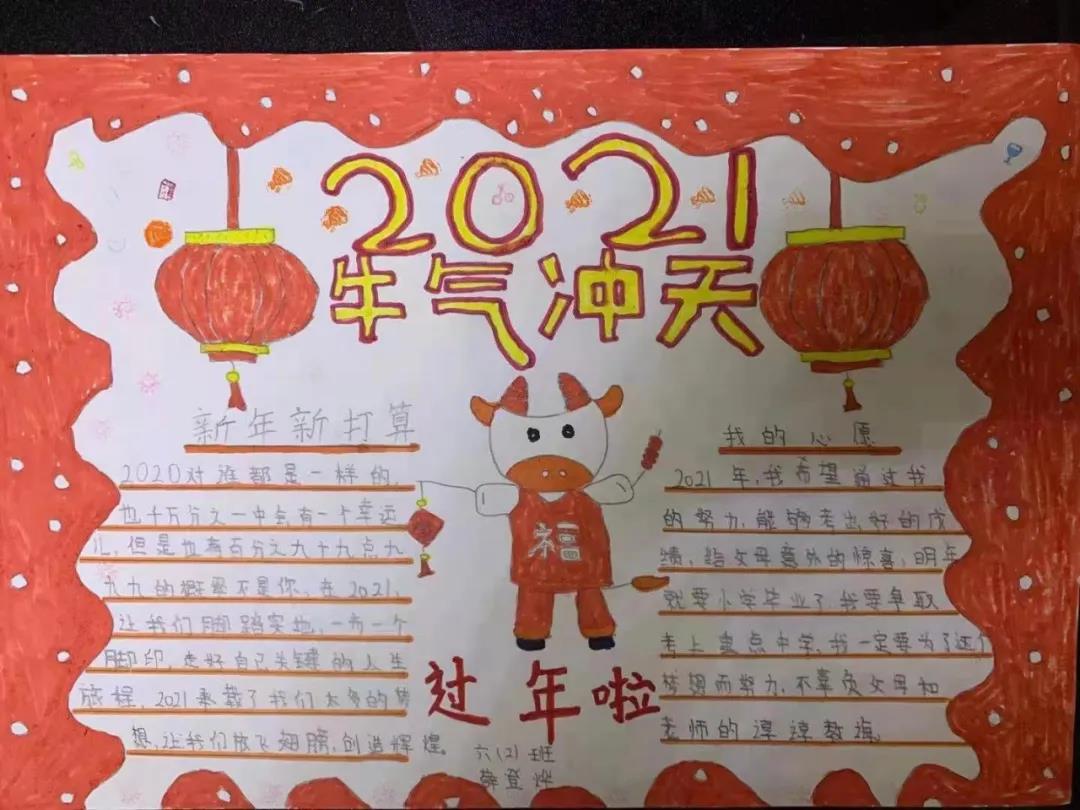 2021
牛气冲天
新年新打算
2020对谁都是一样的,
也十万分之一中会有一个幸运
儿,但是也有百分之九十九点九
九九的概率不是你,在2021,
让我们脚踏实地,一步一个
脚印,走好自己关键的人生
旅程,2021承载了我们太多的梦
想,让我们放飞翅膀,创造辉煌。
福
我的心愿
2021年,我希望通过我
的努力,能够考出好的成
绩,给父母意外的惊喜,明年
就要小学毕业了,我要争取
考上重点中学,我一定要为了这个
梦想而努力,不辜负父母和
老师的谆谆教诲。
过年啦
六(2)班
薛登烨